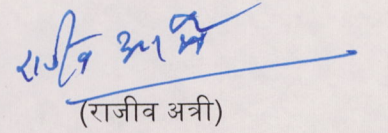 राजीव अत्री
(राजीव अत्री)